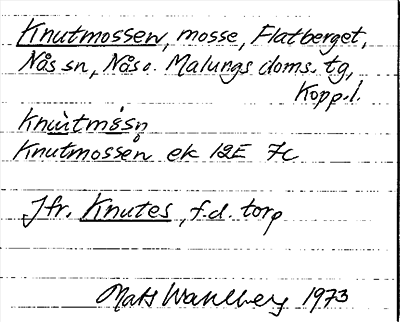 Knutmossen, mosse, Flatberget,
Nås sn, Nås o. Malungs doms. tg,
Kopp. l.
Knùtmå̀sn
Knutmossen ek 12E 7c
Jfr. Knutes, f.d. torp
Mats Wahlberg 1973